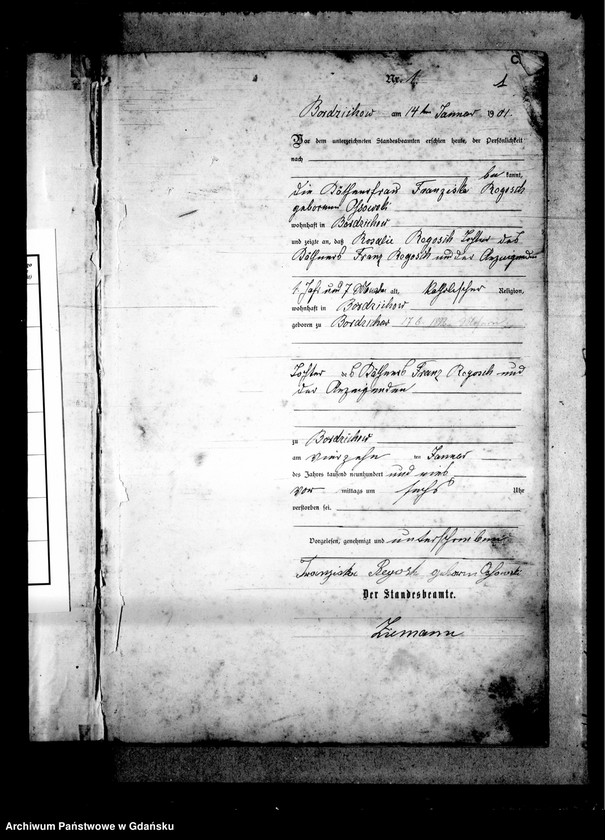 C
Nr. 1
1
Bordzichow am 14 ten Januar 1901.
Vor dem unterzeichneten Standesbeamten erschien heute, der Persönlichkeit
nach
be kannt,
die Käthnerfrau Franziska Rogosch
geborene Ossowski
wohnhaft in Bordzichow
und zeigte an, daß Rosalie Rogosch Tochter des
Käthners Franz Rogosch und der Anzeigenden
7 Monate alt, katholischer Religion,
wohnhaft in Bordzichow
geboren zu Bordzichow
Tochter des Käthners Franz Rogosch und
der Anzeigenden
zu Bordzichow
am vierzehn ten Januar
des Jahres tausend neunhundert und eins
vor mittags um sechs Uhr
verstorben sei.
Vorgelesen, genehmigt und unterschrieben
Franziska Rogosch geborene Ossowski
Der Standesbeamte.
Ziemann
Archiwum Państwowe w Gdańsku